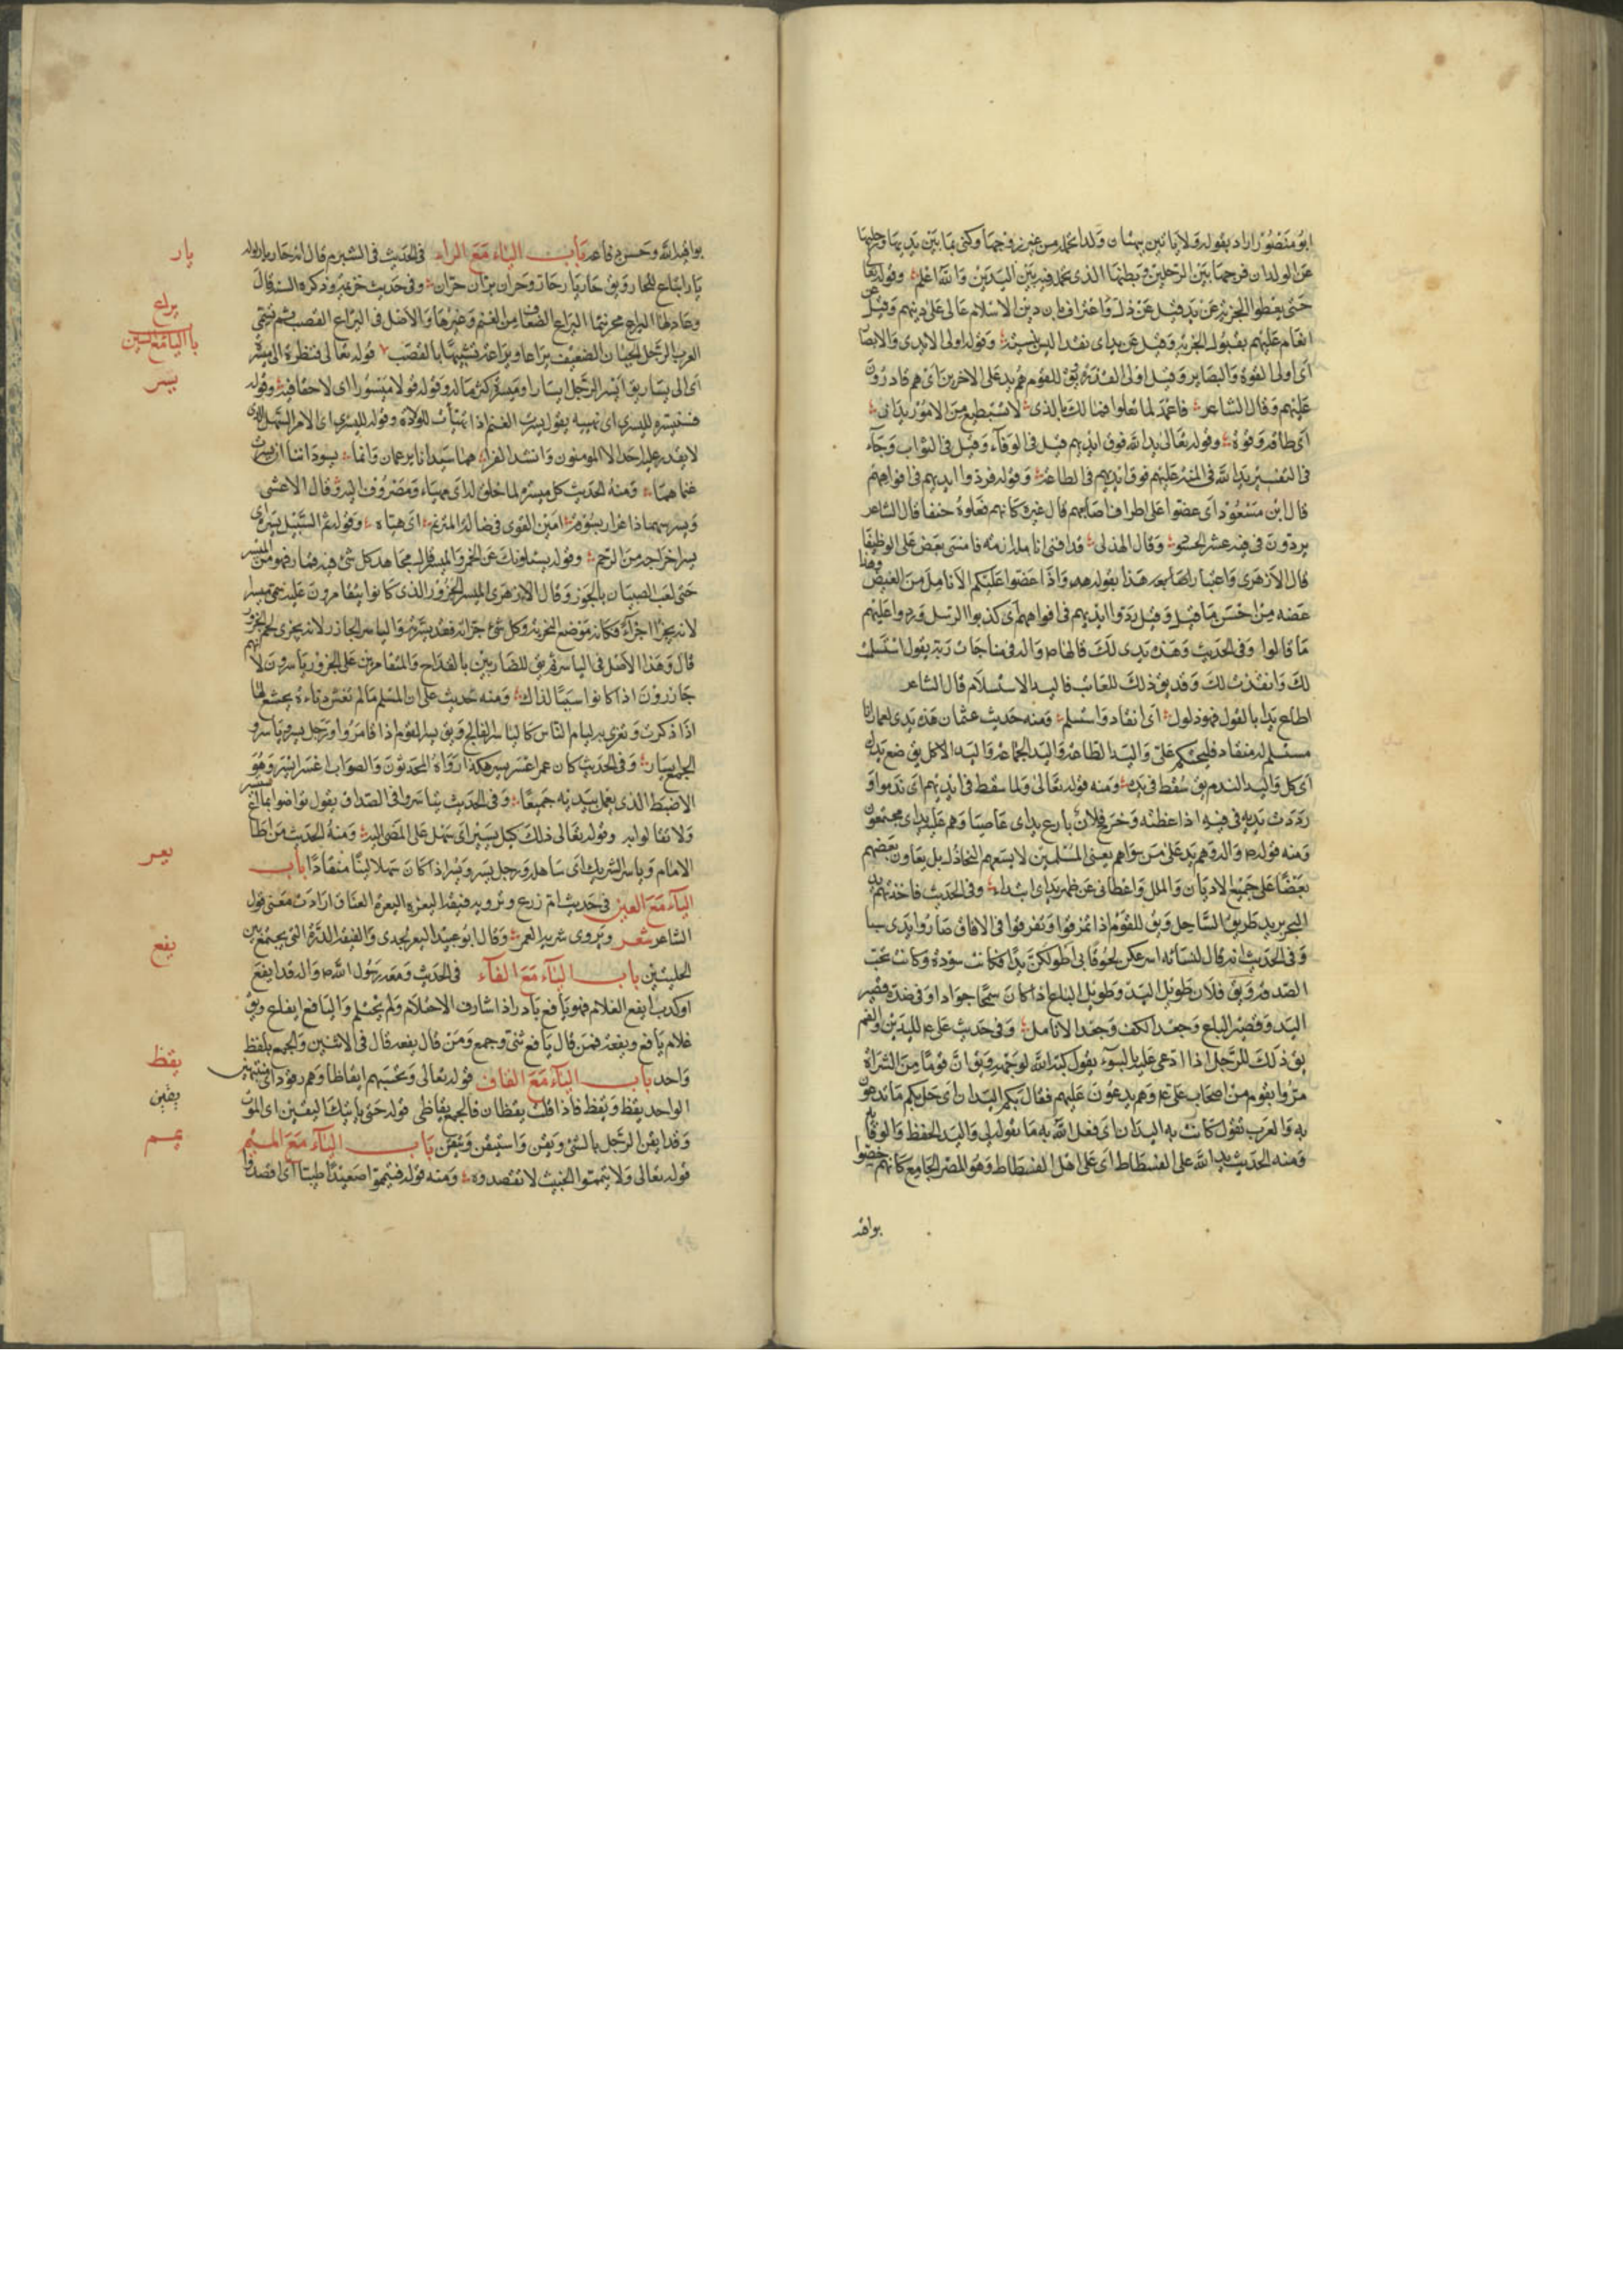 ابو منصور اراد بقوله ولا ياتين ببهتان ولدا تحمله من غير زوجها وكنى بما بين يديها ورجليها
عن الولد لان فرجها بين الرجلين وبطنها الذى تحمله فيه بين اليدين والله اعلم وقوله تعالى
حتى يعطوا الجزية عن يد قيل عن ذل واعتراف بان دين الاسلام عالى على دينهم وقيل عن
انعام عليهم بقبول الجزية وقيل عن يد اى نقد ليس بنسيئة وقوله اولى الايدى والابصار
اى اولى القوة والبصاير وقيل اولى القدرة يق للقوم هم يد على الاخرين اى هم قادرون
عليهم وقال الشاعر فاعمد لما تعلوا فما لك بالذى لا تستطيع من الامور يدان
اى طاقة وقوة وقوله تعالى يد الله فوق ايديهم قيل فى الوفاء وقيل فى الثواب وجاء
فى التفسير يد الله فى المنة عليهم فوق ايديهم فى الطاعة وقوله فردوا ايديهم فى افواههم
قال ابن مسعود اى عضوا على اطراف اصابعهم قال غيره كانهم فعلوه حنقا قال الشاعر
يردون فى فيه عشر الحسود وقال الهذلى قد افنى انامله ازمه فامسى يعض على الوظيفا
قال الازهرى واعتبار اصحابه هذا بقوله واذا خلوا عضوا عليكم الانامل من الغيظ وهذا
من احسن ما قيل وقيل ردوا ايديهم فى افواههم اى كذبوا الرسل وردوا عليهم
ما قالوا وفى الحديث وهذه يدى لك قالها ص واله فى مناجات ربه يقول استسلمت
لك وانقدت لك وقد يق ذلك للعاتب قاليد الاستسلام قال الشاعر
اطاع يدا بالقول فهو ذلول اى انقاد واستسلم ومنه حديث عثمان هذه يدى لعمار انا
مستسلم له منقاد فليحتكم على واليد الطاعة واليد الجماعة واليد الاكل يق ضع يدك
اى كل واليد الندم يق سقط فى يده ومنه قوله تعالى ولما سقط فى ايديهم اى ندموا و
رددت يديه فى فيه اذا غظته وخرج فلان نازع يد اى عاصيا وهم عليه يد اى مجتمعون
ومنه قوله ص واله وهم يد على من سواهم يعنى المسلمين لا يسعهم التخاذل بل يعاون بعضهم
بعضا على جميع الاديان والملل واعطانى عن ظهر يد اى ابتداء وفى الحديث فاخذ بهم يد
البحر يريد طريق الساحل ويق للقوم اذا تمزقوا وتفرقوا فى الافاق صاروا ايدى سبا
وفى الحديث انه قال لنسائه اسرعكن لحوقا بى اطولكن يدا فكانت سودة وكانت تحب
الصدقة ويق فلان طويل اليد وطويل الباع اذا كان سمحا جوادا وفى ضده قصير
اليد وقصير الباع وجعد الكف وجعد الانامل وفى حديث على ع لليدين والفم
يق ذلك للرجل اذا دعى عليه بالسوء يقول كبه الله لوجهه ويق ان قوما من الشراة
مروا بقوم من اصحاب على ع وهم يدعون عليهم فقال بكم اليدان اى حل بكم ما تدعون
به والعرب تقول كانت به اليدان اى فعل الله به ما يقوله لى واليد الحفظ والوقاية
ومنه الحديث يد الله على الفسطاط اى على اهل الفسطاط وهو المصر الجامع كانهم خصوا
بواقية
بواقية الله وحسن دفاعه باب الياء مع الراء فى الحديث فى الشبرم قال انه حار يار قوله
يار اتباع للحار ويق حار يار وحار جار وحران يران جران وفى حديث خزيمة وذكره السنة قال
وعاد لها اليراع مجرنثما اليراع الضعاف من الغنم وغيرها والاصل فى اليراع القصب ثم سمى
العرب الرجل الجبان الضعيف يراعا ويراعة تشبيها بالقصب قوله تعالى فنظرة الى ميسرة
اى الى يسار يق ايسر الرجل ايسارا وميسرة كثر ماله وقوله قولا ميسورا اى لا جفا فيه وقوله
فسنيسره لليسرى اى نهيئه يقول يسرت الغنم اذا تهيأت للولادة وقوله لليسرى اى الامر السهل الذى
لا يقدر عليه احد الا المومنون وانشد الفرا هما سيدانا يزعمان وانما يسوداننا ان يسرت
غنماهما ومنه الحديث كل ميسر لما خلق له اى مهيأ ومصروف اليه وقال الاعشى
يسرا خراجه من الرحم وقوله يسئلونك عن الخمر والميسر قال مجاهد كل شئ فيه قمار فهو من الميسر
حتى لعب الصبيان بالجوز وقال الازهرى الميسر الجزور الذى كانوا يتقامرون عليه سمى ميسرا
لانه يجزأ اجزاء فكانه موضع التجزية وكل شئ جزاته فقد يسرته والياسر الجازر لانه يجزى لحم الجزور
قال وهذا الاصل فى الياسر ثم يق للضاربين بالقداح والمتقامرين على الجزور ياسرون لانهم
جازرون اذا كانوا سببا لذلك ومنه حديث على ان المسلم ما لم يغش دناءة يخشع لها
اذا ذكرت وتغرى به لئام الناس كالياسر الفالج ويق يسر القوم اذا قامروا ورجل يسر وياسر و
الجمع ايسار وفى الحديث كان عمر اعسر ايسر هكذا رواه المحدثون والصواب اعسر يسر وهو
الاضبط الذى يعمل بيديه جميعا وفى الحديث تياسروا فى الصداق يقول تراضوا بما تيسر
ولا تغالوا به وقوله تعالى ذلك كيل يسير اى سهل على المضى اليه ومنه الحديث من اطاع
الامام وياسر الشريك اى ساهله ورجل يسر ويسر اذا كان سهلا لينا منقادا باب
الياء مع العين فى حديث ام زرع وترويه فيقة اليعرة اليعرة العناق ارادت معنى قول
الشاعر شعر ويروى شريد العمر وقال ابو عبيد اليعر الجدى والفيقة الدرة التى يجتمع بين
الحلبتين باب الياء مع الفاء فى الحديث ومعه رسول الله ص واله قد ايفع
او كرب ايفع الغلام فهو يافع نادر اذا شارف الاحتلام ولم يحتلم واليافع ايفاع ويق
غلام يافع ويفعة فمن قال يافع ثنى وجمع ومن قال يفعة قال فى الاثنين والجمع بلفظ
واحد باب الياء مع القاف قوله تعالى وتحسبهم ايقاظا وهم رقود اى منتبهين
الواحد يقظ ويقظ فاذا قلت يقظان فالجمع يقاظى قوله حتى ياتيك اليقين اى الموت
وقد ايقن الرجل بالشئ ويقن واستيقن وتيقن باب الياء مع الميم
قوله تعالى ولا تيمموا الخبيث لا تقصدوه ومنه قوله فتيمموا صعيدا طيبا اى اقصدوا
يار
يراع
باب اليا مع السين
يسر
يعر
يفع
يقظ
يقين
يمم